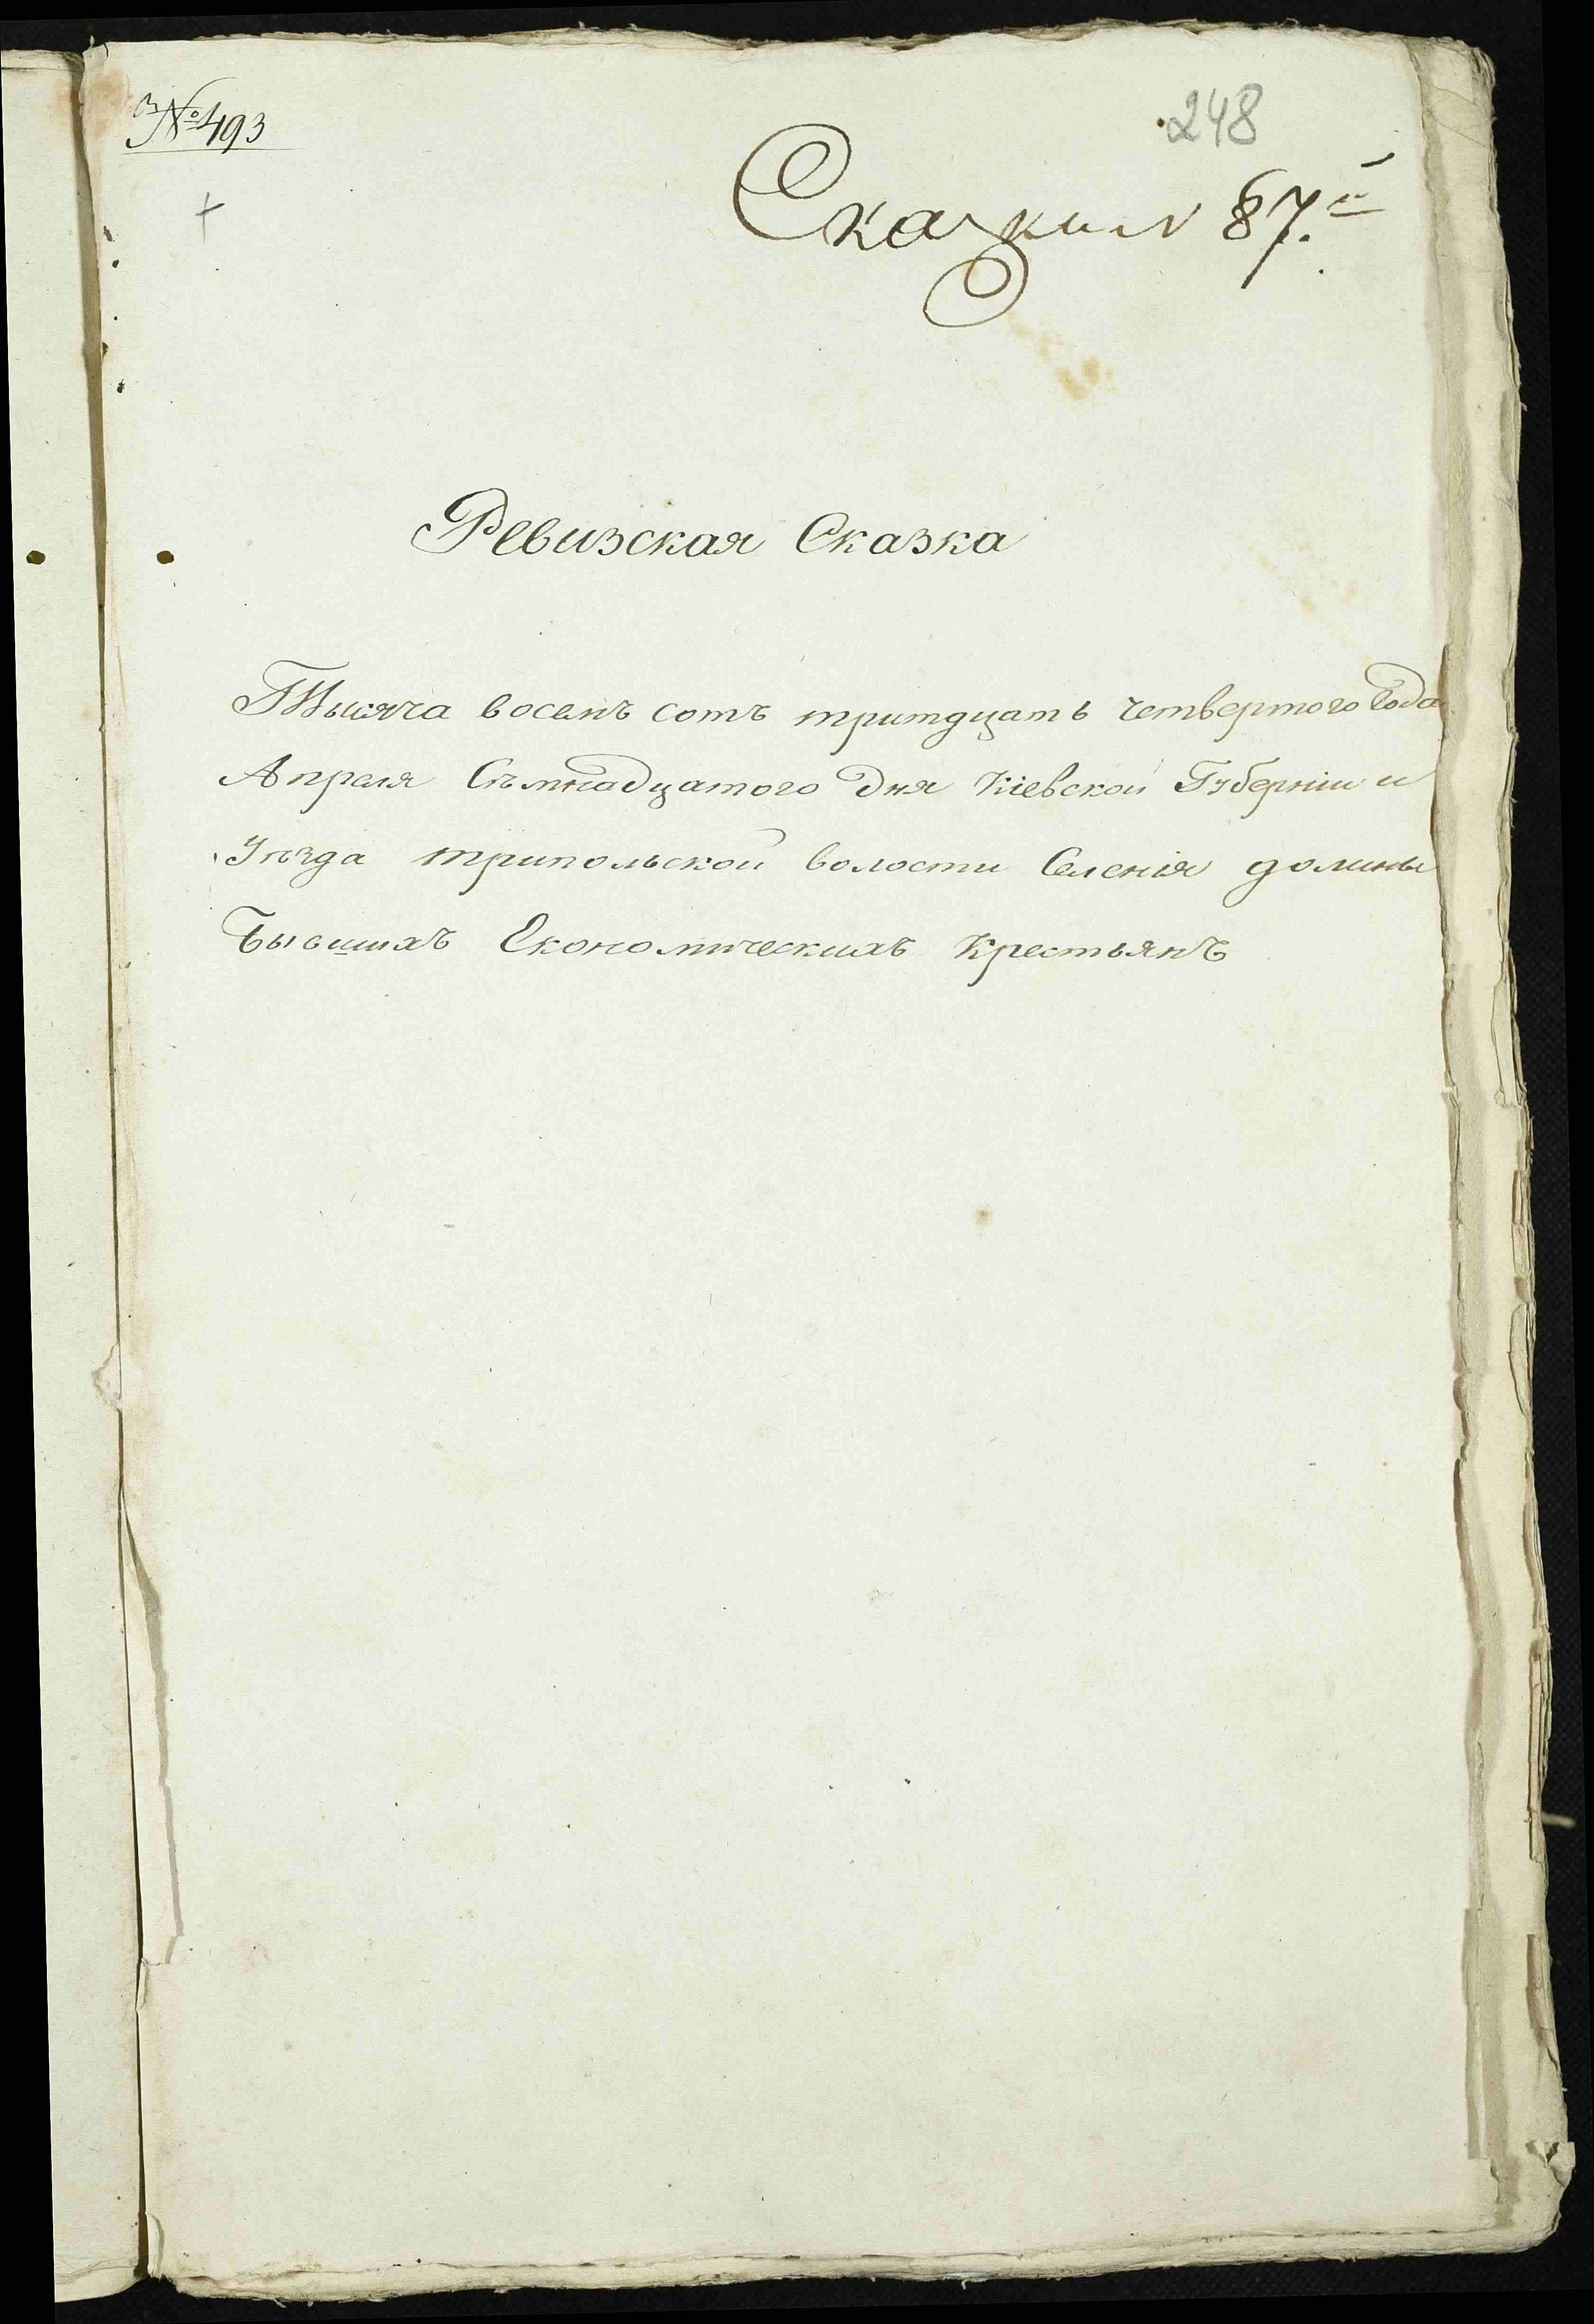 № 493
248
Сказки № 87.й
Ревизская Сказка
Тысяча восемъ сотъ тритдцать четвертого Года
Апреля Съмнадцатого Дня Кіевской Губерніи и
Уѣзда трипольской волости Селенія долины
Бывшихъ Економическихъ Крестьянъ